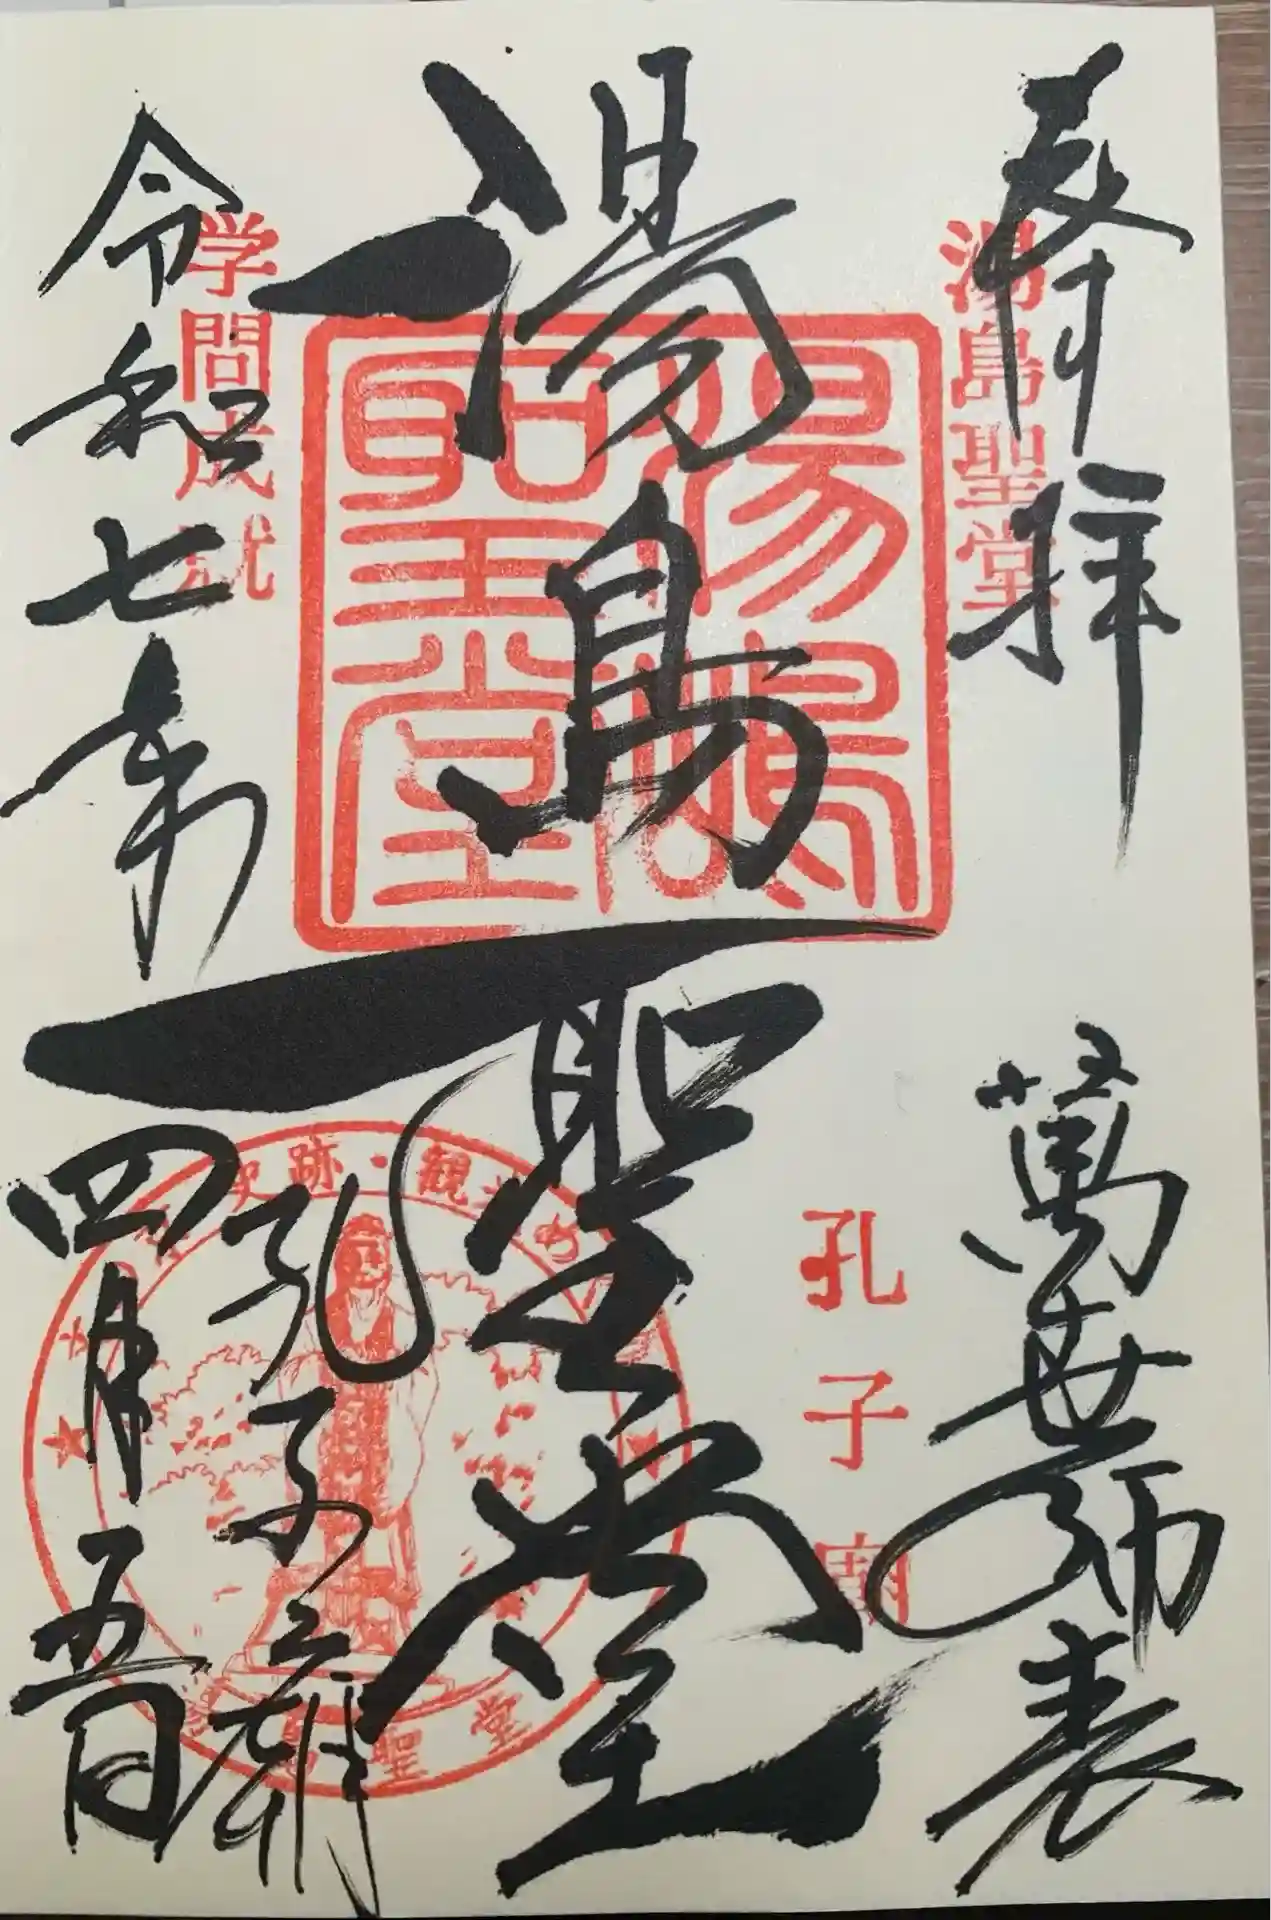 奉拝
湯島聖堂
萬世師表
孔子廟
湯島聖堂
湯島聖堂
史跡・観
聖堂
孔子廟
学問成就
令和七年
四月五日